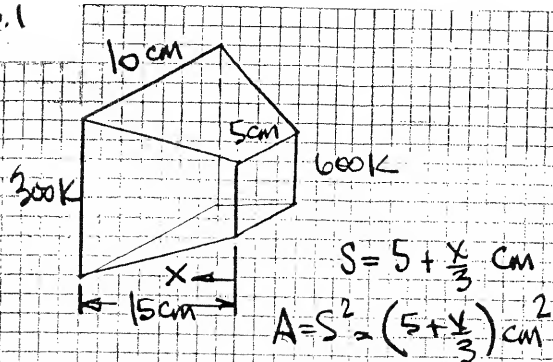 .1
10 cm
5cm
300K
600K
x
15cm
S = 5 + x/3 cm
A = S² = (5 + x/3) cm²